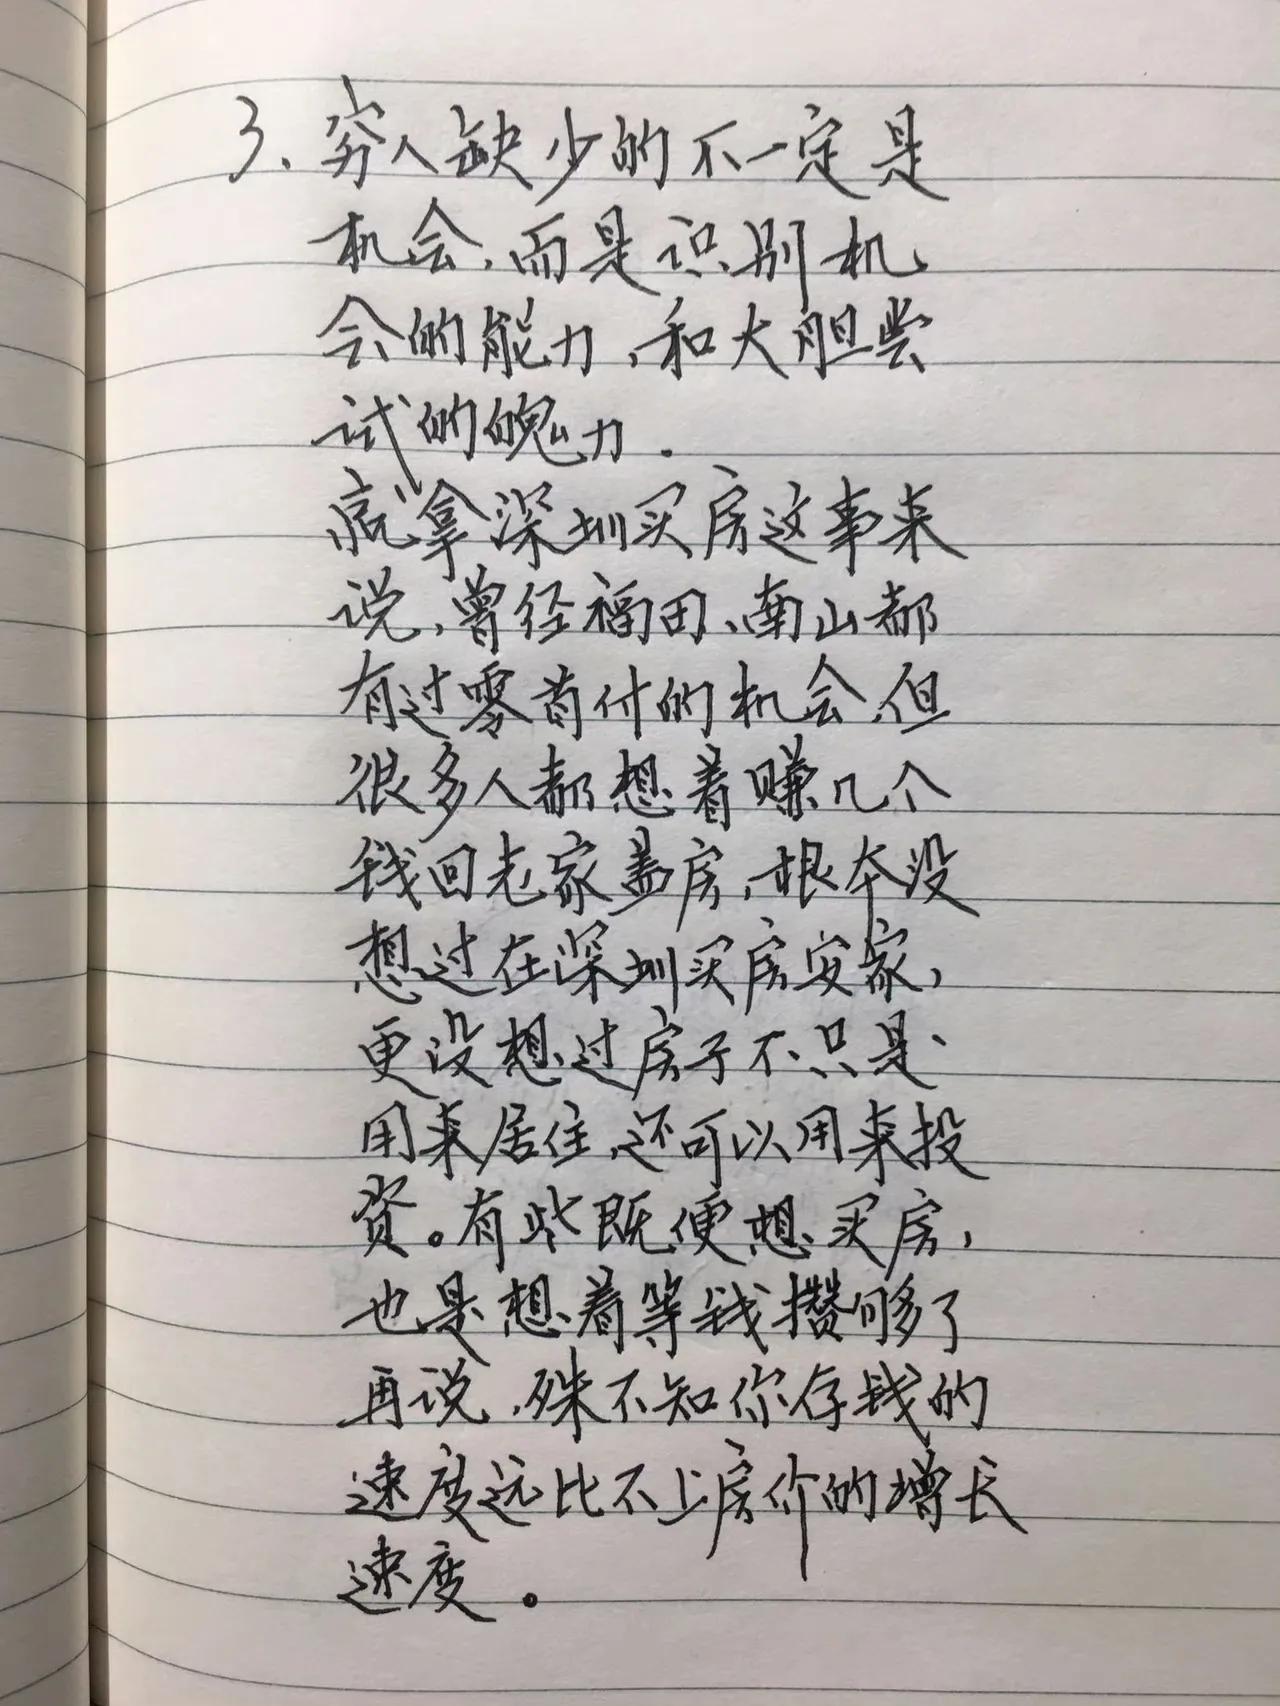 3、穷人缺少的不一定是
机会,而是识别机
会的能力,和大胆尝
试的魄力.
就拿深圳买房这事来
说,曾经福田、南山都
有过零首付的机会,但
很多人都想着赚几个
钱回老家盖房,根本没
想过在深圳买房安家,
更没想过房子不只是
用来居住,还可以用来投
资。有些既便想买房,
也是想着等钱攒够了
再说,殊不知你存钱的
速度远比不上房价的增长
速度。